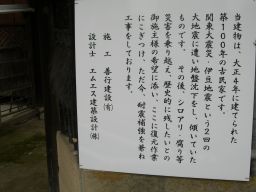 当建物は、大正4年に建てられた
築100年の古民家です。
関東大震災・伊豆地震という2回の
大地震に遭い地盤沈下をし、傾いていた
ものです。その後、シロアリ・腐り等
災害を乗り越え、歴史的に残したいとの
御施主様の希望に添い、ここに復元作業
にこぎつけ、ただ今、耐震補強を兼ね
工事をしております。
施工 善行建設(有)
設計士 エムエス建築設計(株)